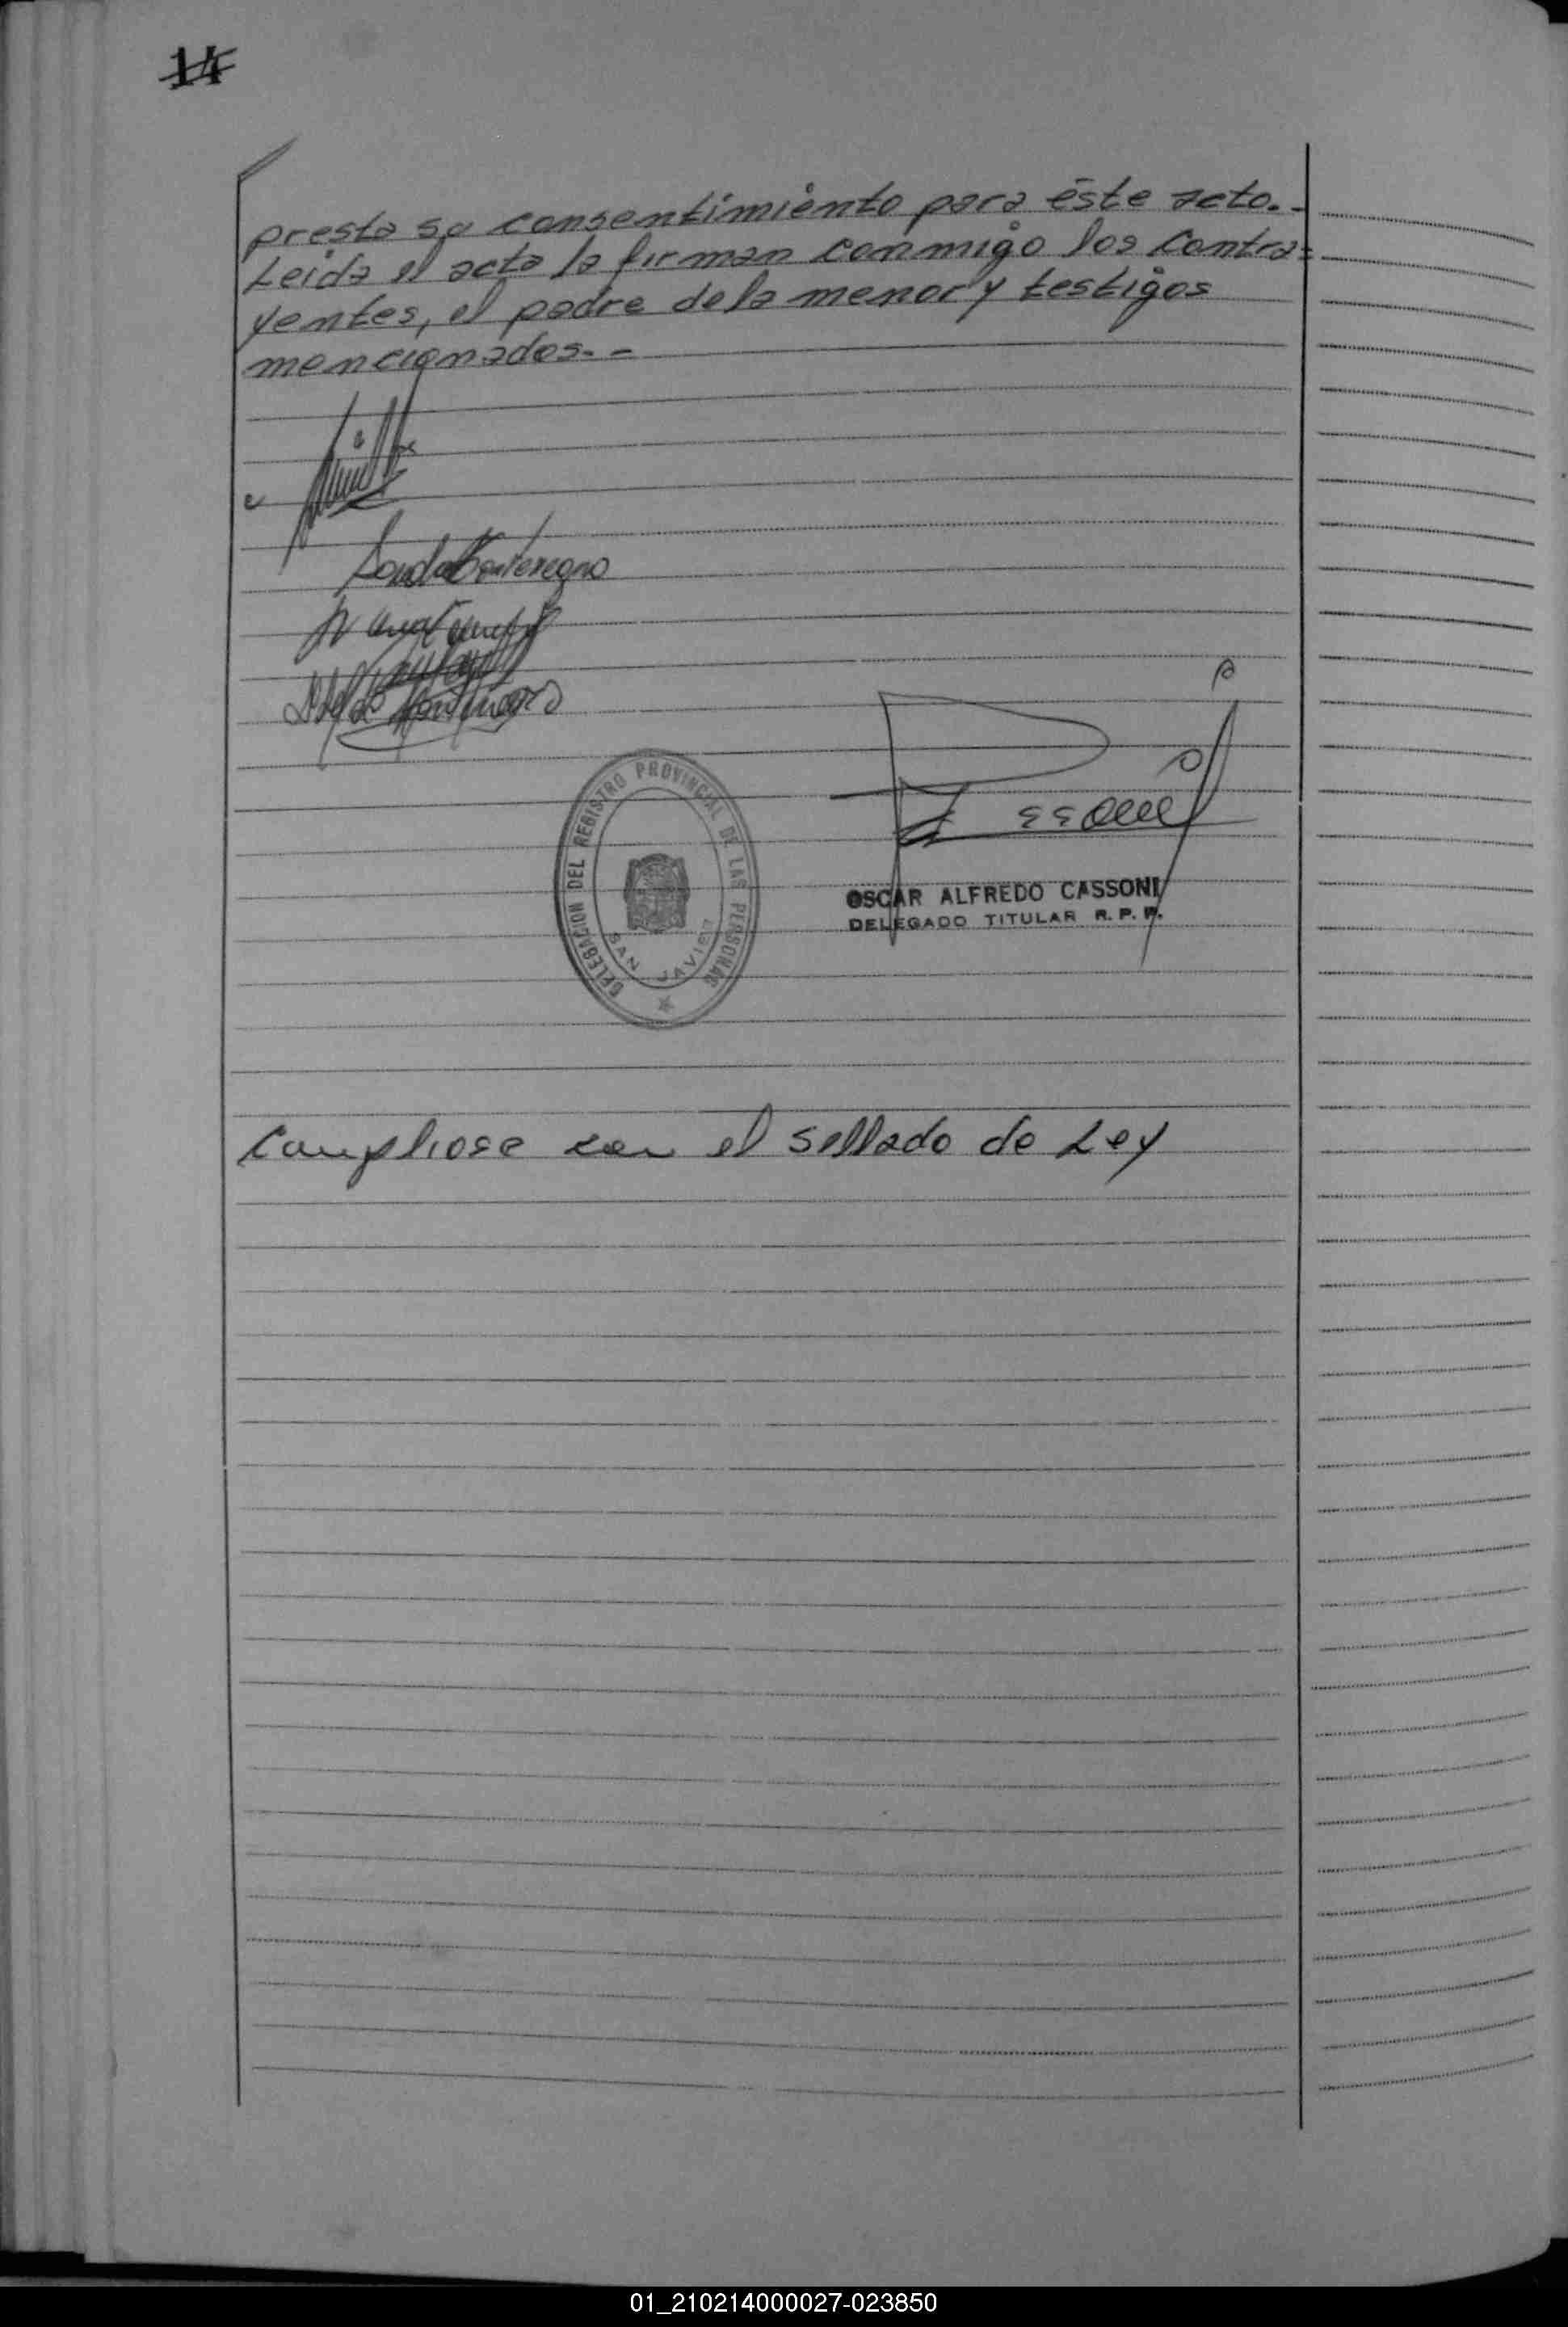 14
presta su consentimiento para éste acto.-
Leida el acta la firman conmigo los contra=
yentes, el padre de la menor y testigos
mencionados.-
Montenegro
DELEGACION DEL REGISTRO PROVINCIAL DE LAS PERSONAS
SAN JAVIER
OSCAR ALFREDO CASSONI
DELEGADO TITULAR R. P. P.
Cumpliose con el sellado de Ley
01_210214000027-023850